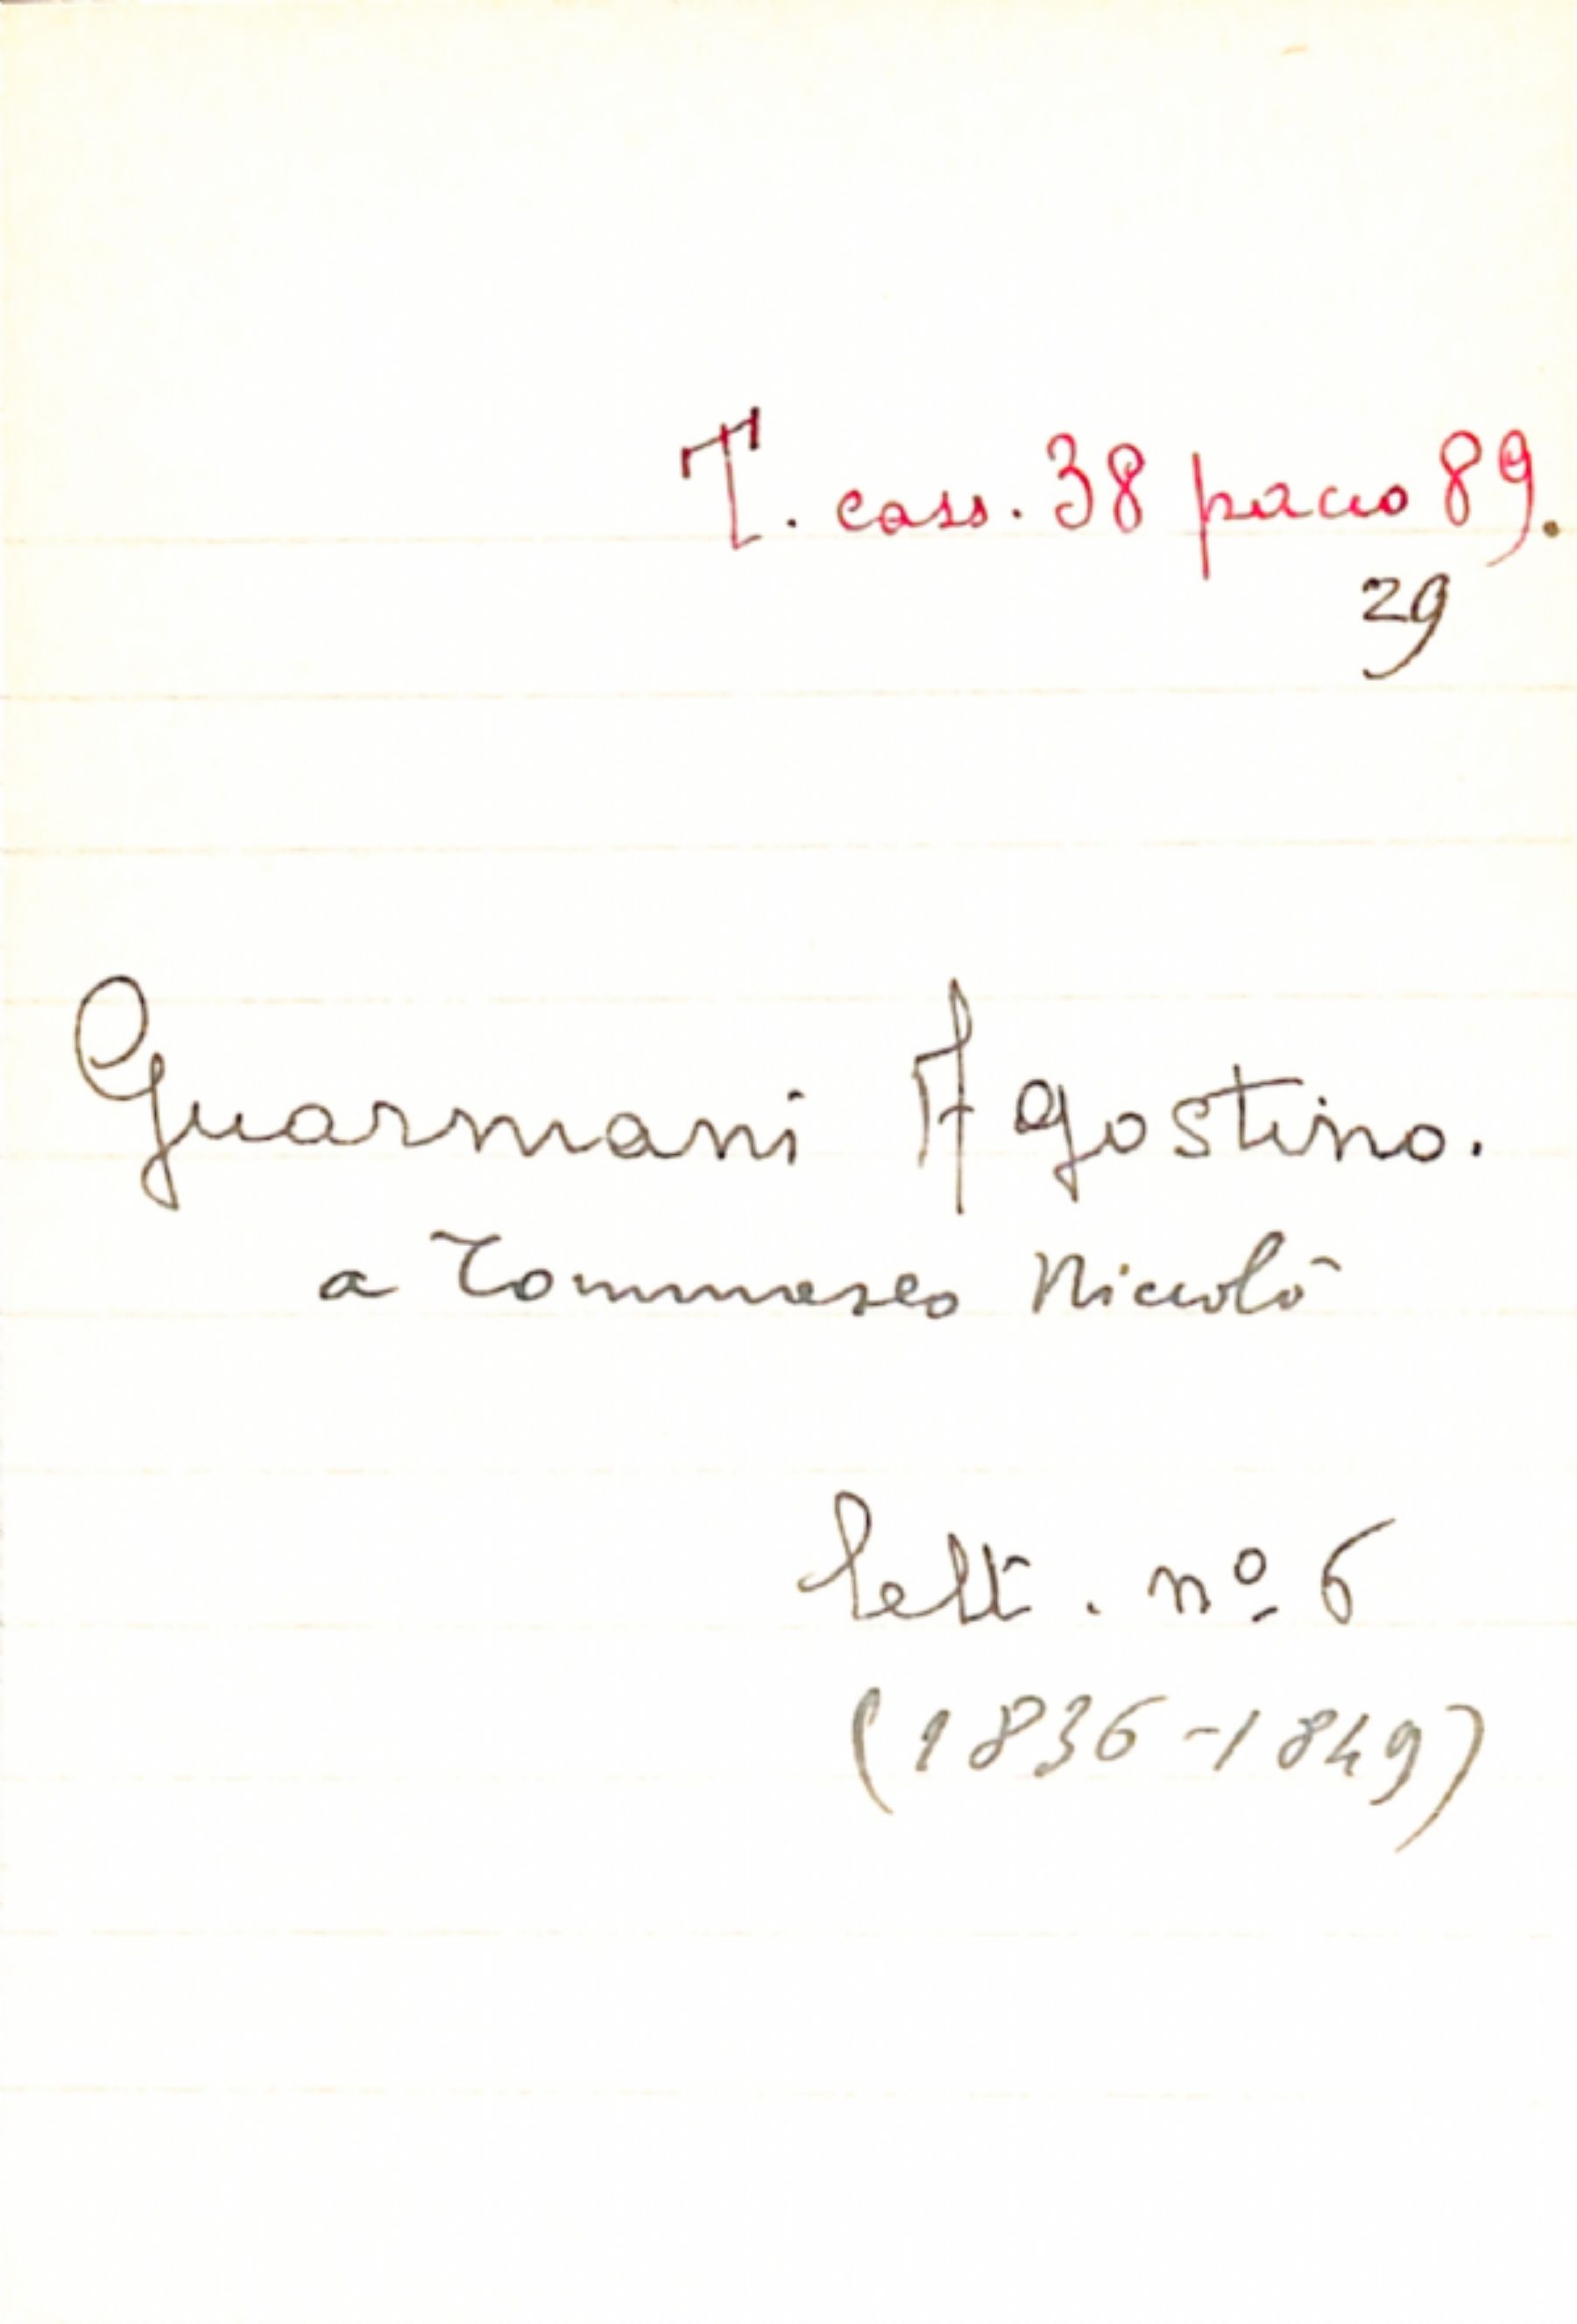 T. cass. 38 pacco 89.
29
Guarmani Agostino.
a Tommaseo Niccolò
lett. nº 6
(1836-1849)